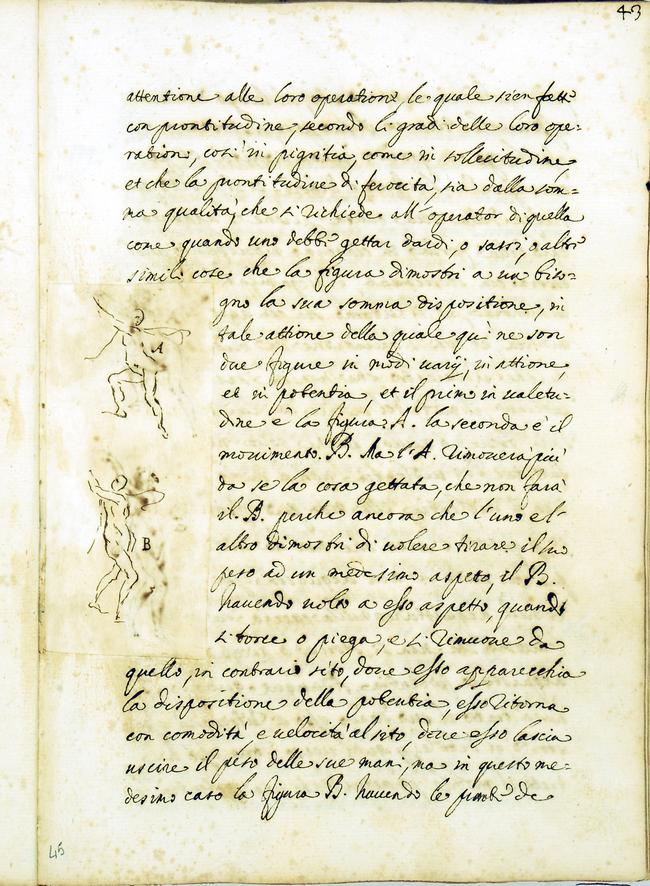 43
attentione alle loro operationi, le quale sien fatte
con prontitudine, secondo li gradi delle loro ope=
rationi, cosi in pigritia come in sollecitudine,
et che la prontitudine di ferocità, sia dalla som=
ma qualità, che si richiede all' operator di quella
come quando uno debbe gettar dardi, o sassi, o altri
simili cose che la figura dimostri a un biso=
gno la sua somma dispositione, in
tale attione della quale quì ne son
due figure in modi varij, in attione,
et in potentia, et il primo in valetu=
dine è la figura A. la seconda è il
movimento. B. Ma l'A. rimoverà più
da se la cosa gettata, che non farà
il. B. perche ancora che l'uno e l'
altro dimostri di volere tirare il suo
peso ad un medesimo aspeto, il B.
havendo volto a esso aspetto, quando
si torce o piega, e si rimuove da
quello, in contrario sito, dove esso apparecchia
la dispositione della potentia, esso ritorna
con comodità, e velocità al sito, dove esso lascia
uscire il peso delle sue mani, ma in questo me=
desimo caso la figura B. havendo le punte de
A
B
45